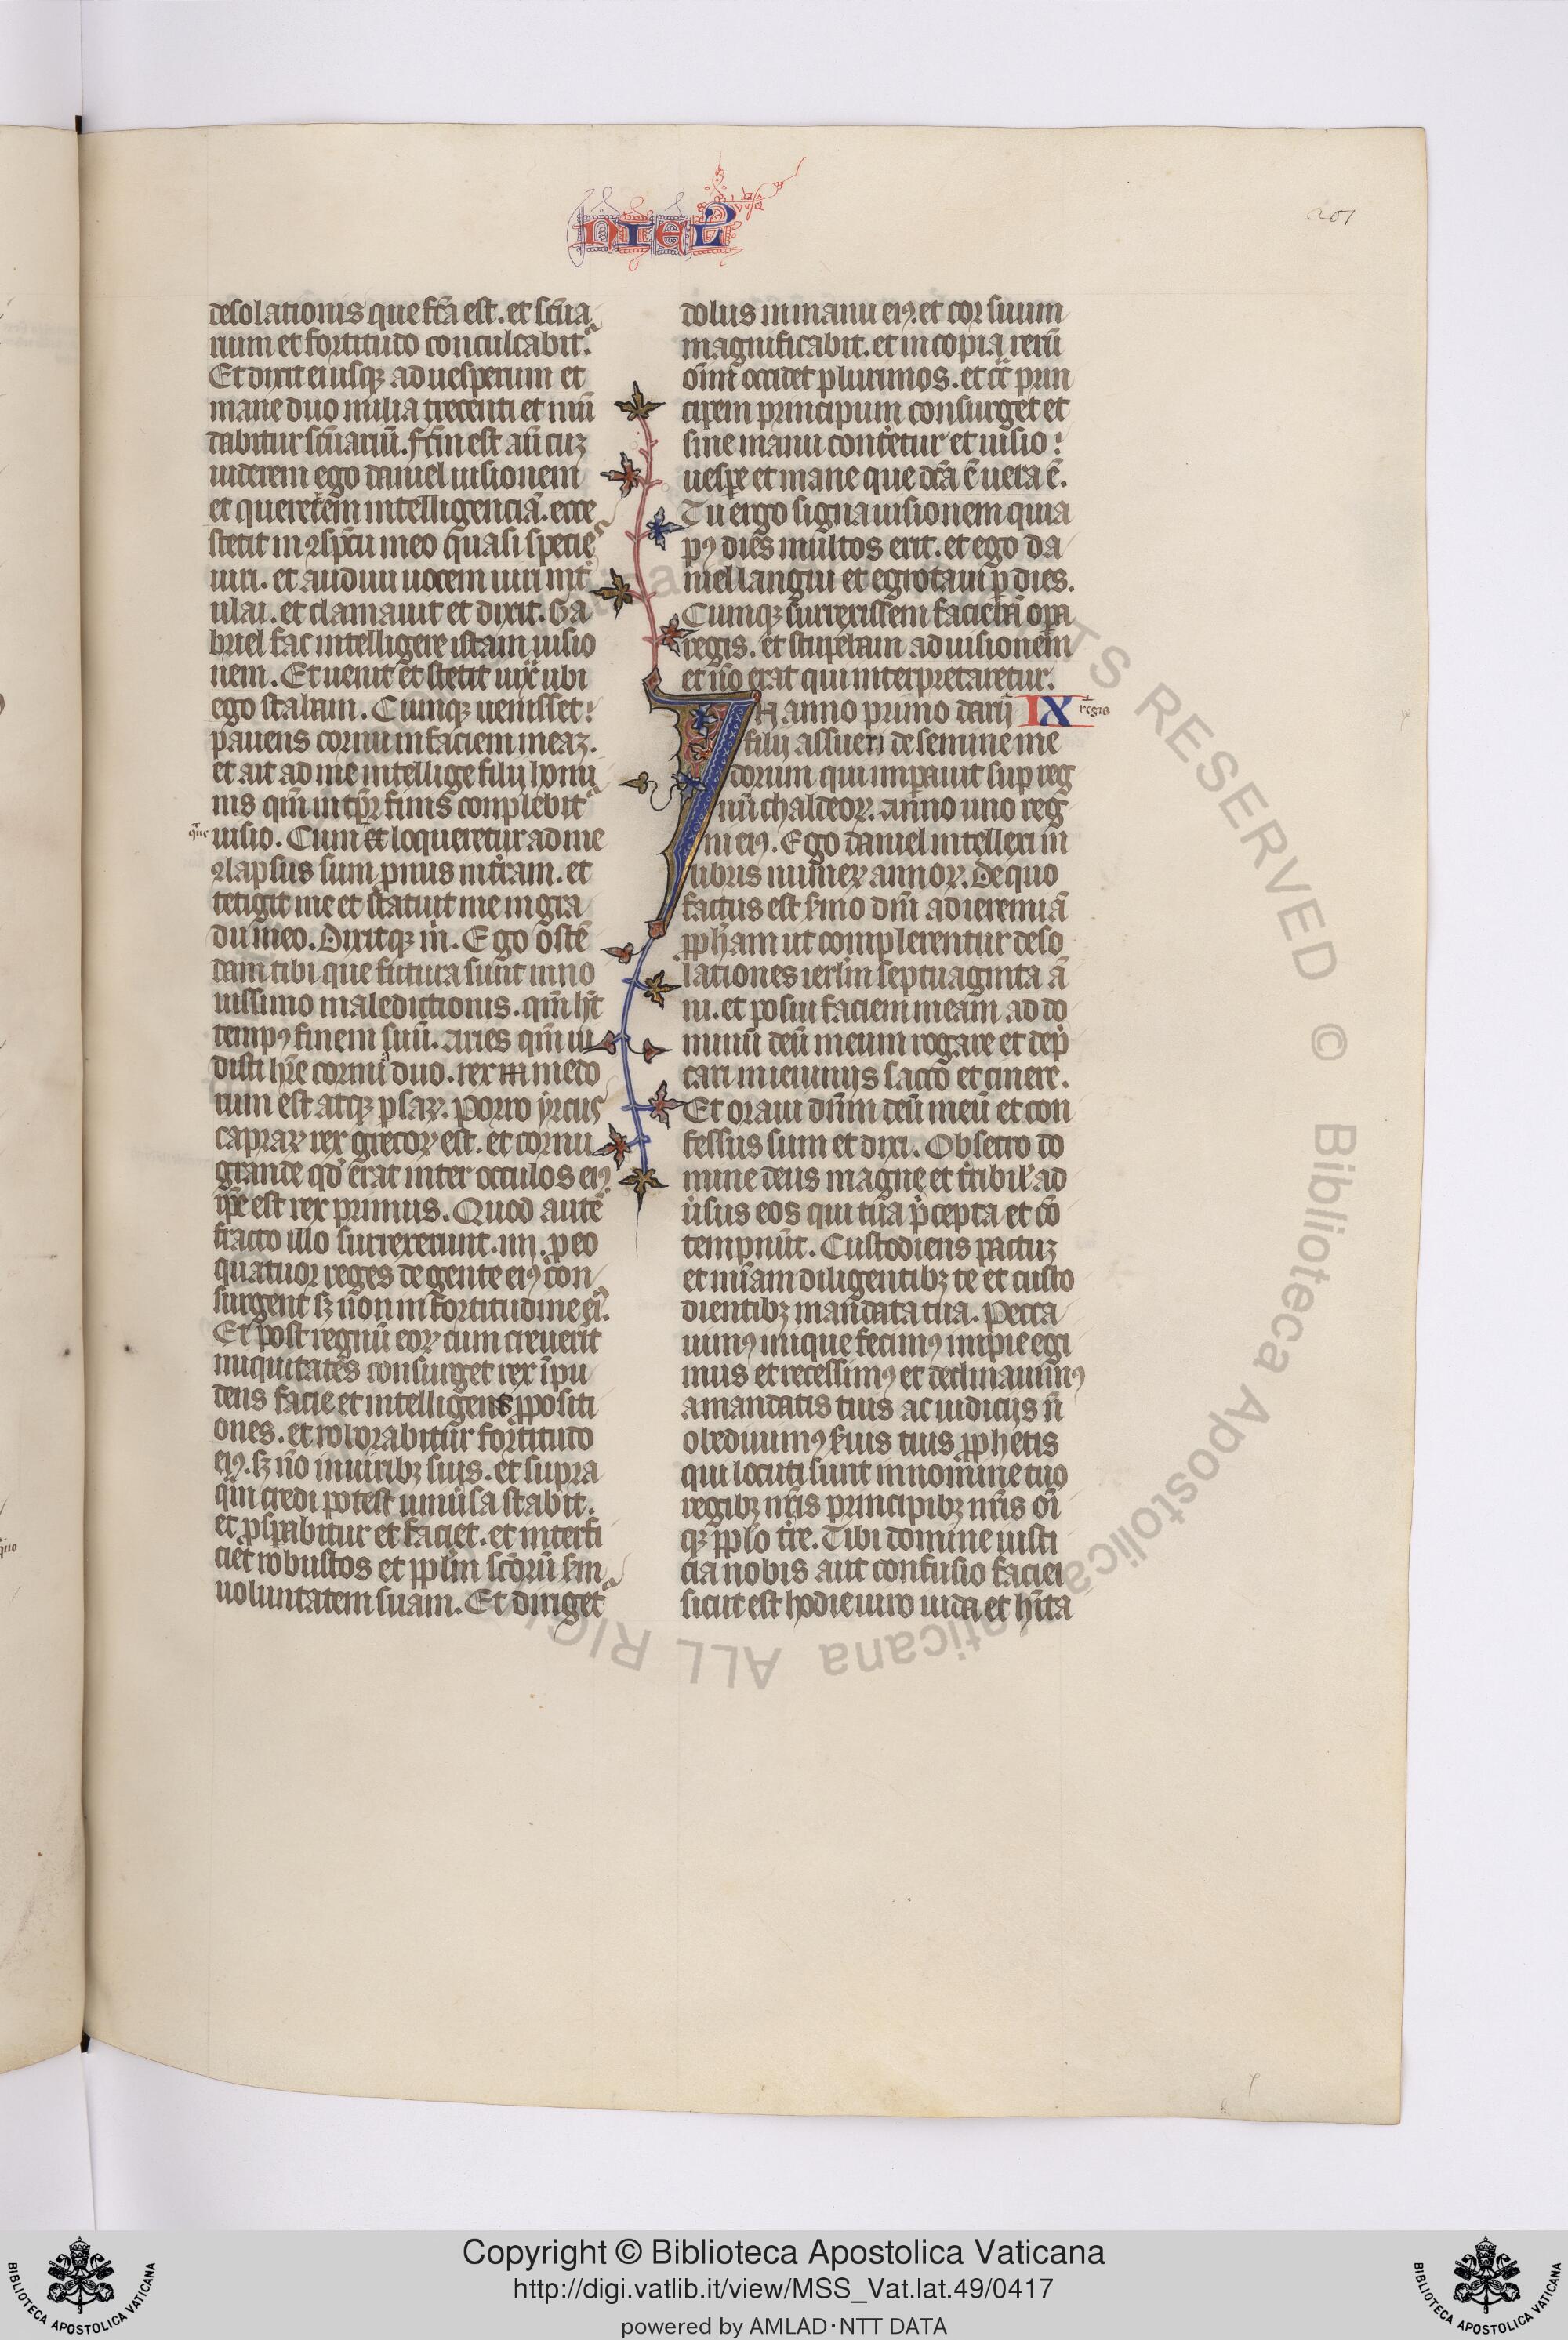 NIEL
201
desolationis que fc̄a est. et sc̄ua
rium et fortitudo conculcabit̄.
Et dixit ei usqꝫ ad uesperum et
mane duo milia trecenti et mū
dabitur sc̄uariū. Fc̄m est aū cuꝫ
uiderem ego daniel uisionem
et quererem intelligenciā. ecce
stetit in ꝯsp̄cu meo quasi specie
uiri. et audiui uocem uiri int̄
ulai. et clamauit et dixit. Ga
briel fac intelligere istam uisio
nem. Et uenit et stetit iux̄ ubi
ego stabam. Cumqꝫ uenisset:
pauens corrui in faciem meaꝫ.
et ait ad me intellige filij homi
nis qm̄ in tp̄r finis conplebit̄
uisio. Cum et loqueretur ad me
ꝯlapsus sum pronus in t̄ram. et
tetigit me et statuit me in gra
du meo. Dixitqꝫ m̄. Ego ostē
dam tibi que futura sunt in no
uissimo maledictionis. qm̄ ht̄
tempꝰ finem suū. Aries qm̄ ui
disti hr̄e cornu duo. rex medo
rum est atqꝫ ꝑsaꝝ. Porro yrcus
capraꝝ rex grecoꝝ est. et cornu
grande qd̄ erat inter occulos eiꝰ
ip̄e est rex primus. Quod autē
fracto illo surrexerunt .iiij. ꝑ eo
quatuor reges de gente eiꝰ con
surgent sꝫ non in fortitudine eiꝰ.
Et post regnū eoꝝ cum creuerīt
iniquitates consurget rex īpu
dens facie et intelligens ꝓpositi
ones. et roborabitur fortitudo
eiꝰ. sꝫ nō in uiribꝫ suis. et supra
qm̄ credi potest uniuersa stabit.
et ꝓsꝑabitur et faciet. et interfi
ciet robustos et ppl̄m sc̄orū sm̄
uoluntatem suam. Et diriget̄
dolus in manu eiꝰ. et cor suum
magnificabit. et in copia rerū
oīm̄ occidet plurimos. et cc̄ prin
cipem principum consurget et
sine manu conteretur et uisio:
uesꝑe et mane que dc̄a ē uera ē.
Tu ergo signa uisionem quia
pꝰ dies multos erit. et ego da
niel langui et egrotaui ꝑ dies.
Cumqꝫ surrexissem faciebā oꝑa
regis. et stupebam ad uisionem
et nō erat qui interpretaretur.
IN anno primo darij IX regis
filij assueri de semine me
dorum qui imꝑauit suꝑ reg
nū chaldeoꝝ. anno uno reg
ni eiꝰ. Ego daniel intellexi in
libris numeꝝ annoꝝ. De quo
factus est s̄mo dn̄i ad ieremiā
ꝓpham ut complerentur deso
lationes ierl̄m septuaginta ā
ni. et posui faciem meam ad do
minū deū meum rogare et dep̄
cari in ieiunijs sacco et cinere.
Et oraui dn̄m deū meū et con
fessus sum et dixi. Obsecro do
mine deus magne et t̄ribil̄ ad
ūsus eos qui tua p̄cepta et cō
tempnūt. Custodiens pactuꝫ
et mīam diligentibꝫ te et custo
dientibꝫ mandata tua. Pecca
uimꝰ inique fecimꝰ impie egi
mus et recessimꝰ et declinauimꝰ
a mandatis tuis ac iudicijs n̄
obediuimꝰ s̄uis tuis ꝓphetis
qui locuti sunt in nomine tuo
regibꝫ nr̄is principibꝫ nr̄is oī
qꝫ pplō tr̄e. Tibi domine iusti
cia nobis aut confusio faciei
sicut est hodie uiro iuda et hīta
Copyright © Biblioteca Apostolica Vaticana
http://digi.vatlib.it/view/MSS_Vat.lat.49/0417
powered by AMLAD·NTT DATA
BIBLIOTECA APOSTOLICA VATICANA
BIBLIOTECA APOSTOLICA VATICANA